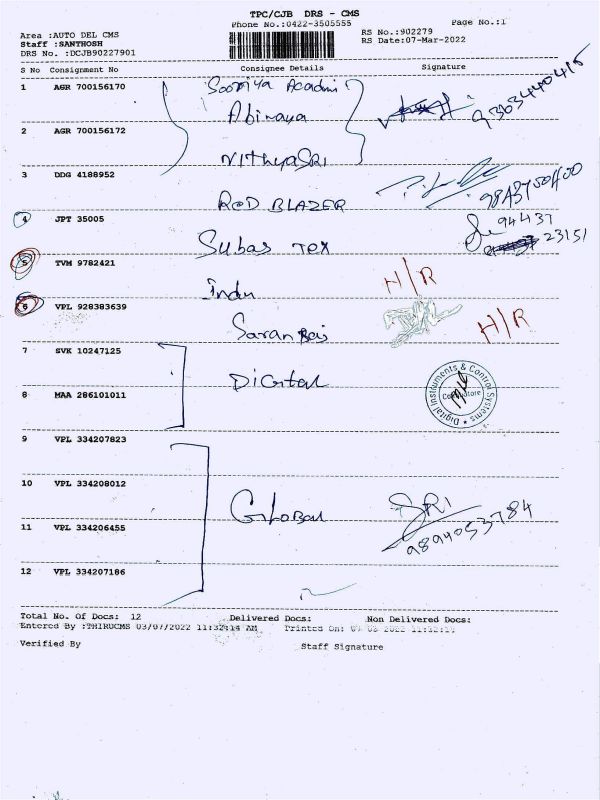 TPC/CJB DRS - CMS
Phone No.:0422-3505555
Page No.:1
Area :AUTO DEL CMS
RS No.:902279
Staff :SANTHOSH
RS Date:07-Mar-2022
DRS No. :DCJB90227901
S No Consignment No Consignee Details Signature
1 AGR 700156170 Sooriya Acadmi
Abinaya
9303440415
2 AGR 700156172
NithyaSRI
3 DDG 4188952
RED BLAZER
4 JPT 35005
94437
Subas Tex
23151
5 TVM 9782421
H/R
Indu
6 VPL 928383639
Saran Raj
H/R
7 SVK 10247125
Digital
Digital Instruments & Control Systems
Coimbatore
8 MAA 286101011
9 VPL 334207823
10 VPL 334208012
Global SRI
9894053784
11 VPL 334206455
12 VPL 334207186
Total No. Of Docs: 12 Delivered Docs: Non Delivered Docs:
Entered By :THIRUCMS 03/07/2022 11:32:14 AM Printed On:
Verified By Staff Signature